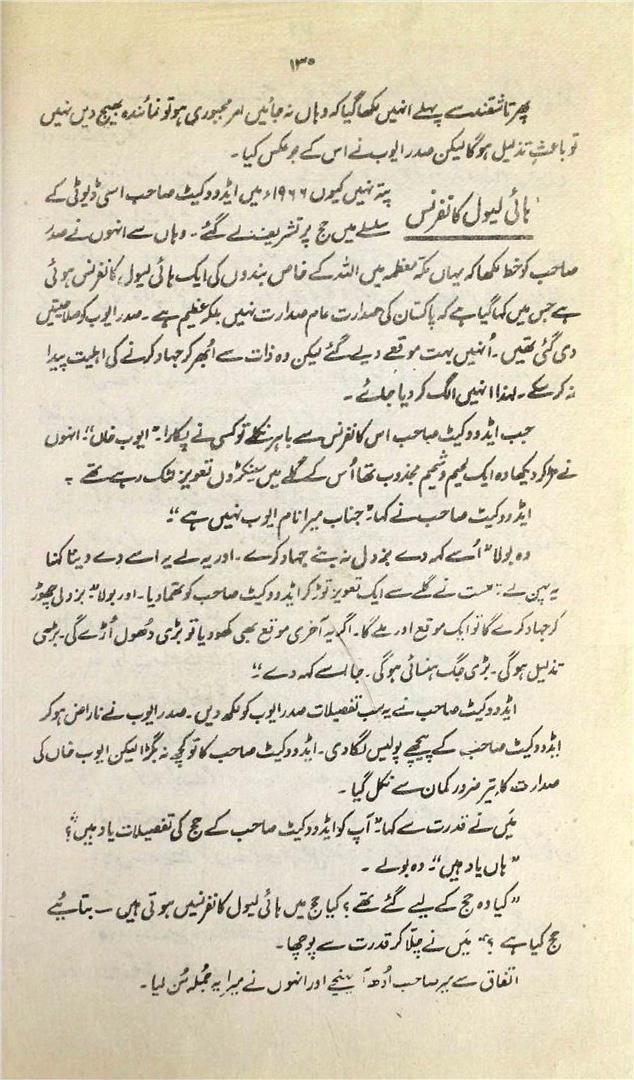 ۱۳۰
پھر تاشقند سے پہلے انہیں لکھا گیا کہ وہاں نہ جائیں اور مجبوری ہو تو نمائندہ بھیج دیں نہیں
تو باعثِ تذلیل ہو گا لیکن صدر ایوب نے اس کے برعکس کیا۔
ہائی لیول کانفرنس
پتہ نہیں کیوں ۱۹۶۶ء میں ایڈووکیٹ صاحب اسی ڈیوٹی کے
سلسلے میں حج پر تشریف لے گئے۔ وہاں سے انہوں نے صدر
صاحب کو خط لکھا کہ یہاں مکّہ معظمہ میں اللہ کے خاص بندوں کی ایک ہائی لیول کانفرنس ہوئی
ہے جس میں کہا گیا ہے کہ پاکستان کی صدارت عام صدارت نہیں بلکہ عظیم ہے۔ صدر ایوب کو صلاحیتیں
دی گئی تھیں۔ اُنہیں بہت موقعے دیے گئے لیکن وہ ذات سے اُبھر کر جہاد کرنے کی اہلیت پیدا
نہ کر سکے۔ لہٰذا انہیں الگ کر دیا جائے۔
جب ایڈووکیٹ صاحب اس کانفرنس سے باہر نکلے تو کسی نے پکارا۔ "ایوب خاں"۔ انہوں
نے مڑ کر دیکھا وہ ایک لحیم و شحیم مجذوب تھا اُس کے گلے میں سینکڑوں تعویز لٹک رہے تھے۔
ایڈووکیٹ صاحب نے کہا۔ "جناب میرا نام ایوب نہیں ہے"۔
وہ بولا "اُسے کہہ دے بزدل نہ بنے جہاد کرے۔ اور یہ لے یہ اسے دے دینا کہنا
یہ پہن لے" مست نے گلے سے ایک تعویز توڑ کر ایڈووکیٹ صاحب کو تھما دیا۔ اور بولا "بزدلی چھوڑ
کر جہاد کرے گا تو ایک موقع اور ملے گا۔ اگر یہ آخری موقع بھی کھو دیا تو بڑی دُھول اُڑے گی۔ بڑی
تذلیل ہو گی۔ بڑی جگ ہنسائی ہو گی۔ جا اسے کہہ دے"۔
ایڈووکیٹ صاحب نے یہ سب تفصیلات صدر ایوب کو لکھ دیں۔ صدر ایوب نے ناراض ہو کر
ایڈووکیٹ صاحب کے پیچھے پولیس لگا دی۔ ایڈووکیٹ صاحب کا تو کچھ نہ بگڑا لیکن ایوب خاں کی
صدارت کا تیر ضرور کمان سے نکل گیا۔
مَیں نے قدرت سے کہا۔ "آپ کو ایڈووکیٹ صاحب کے حج کی تفصیلات یاد ہیں؟"
"ہاں یاد ہیں"۔ وہ بولے۔
"کیا وہ حج کے لیے گئے تھے؟ کیا حج میں ہائی لیول کانفرنسیں ہوتی ہیں۔ بتائیے
حج کیا ہے؟" مَیں نے چلّا کر قدرت سے پوچھا۔
اتفاق سے پیر صاحب اُدھر آ پہنچے اور انہوں نے میرا یہ جملہ سُن لیا۔